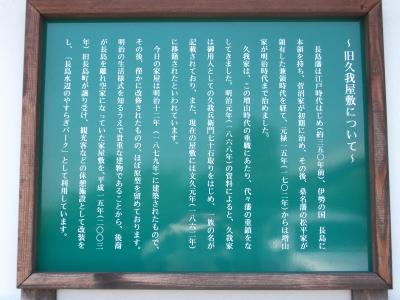 ～旧久我屋敷について～
長島藩は江戸時代はじめ（約三五〇年前）、伊勢の国　長島に
本領を持ち、菅沼家が初期に治め、その後、桑名藩の松平家が
領有した兼領時代を経て、元禄一五年（一七〇二年）からは増山
家が明治時代まで治めました。
久我家は、この増山時代の重職にあたり、代々藩の重鎮をな
してきました。明治元年（一八六八年）の資料によると、久我家
は御用人としての久我兵衛門七十石取りをはじめ、一族の名が
記載されており、また、現在の屋敷には文久元年（一八六一年）
に移築されたといわれています。
今日の家屋は明治十二年（一八七九年）に建築されたもので、
その後、僅かに改修されたものの、ほぼ原型を留めております。
明治の生活様式を知るうえで貴重な建物であることから、後裔
が長島を離れ空家になっていた家屋敷を、平成一五年（二〇〇三
年）旧長島町が譲り受け、観光客などの休憩施設として改装を
し、「長島水辺のやすらぎパーク」として利用しています。